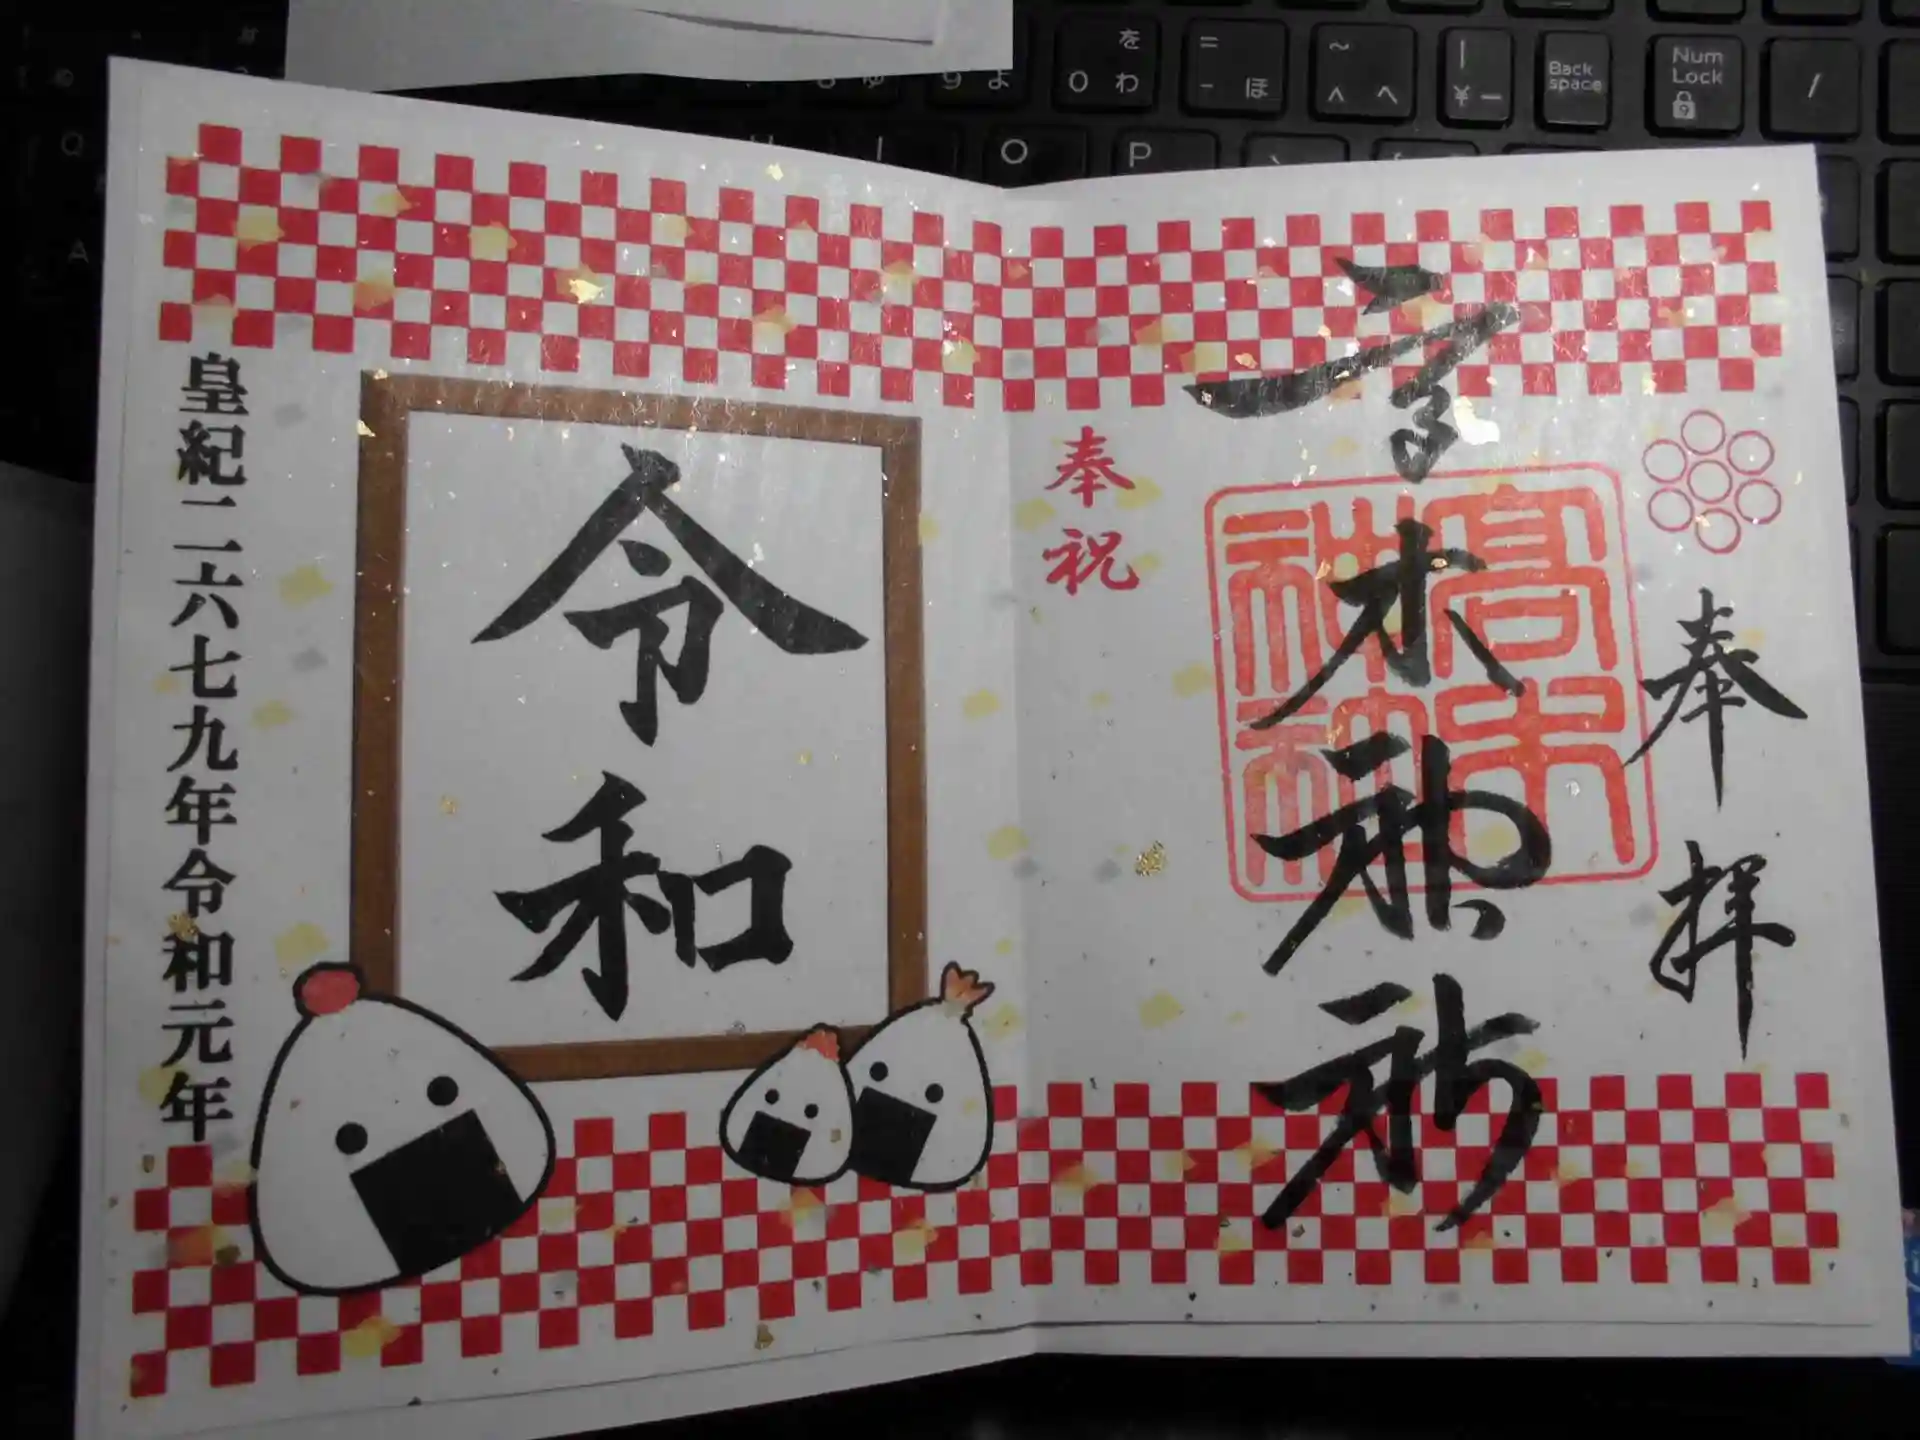 奉拝
高木神社
髙木
神社
奉祝
令和
皇紀二六七九年令和元年
を
0 わ
=
- ほ
~
^ へ
|
¥ ー
Back space
Num Lock
/
O
P
Q
A